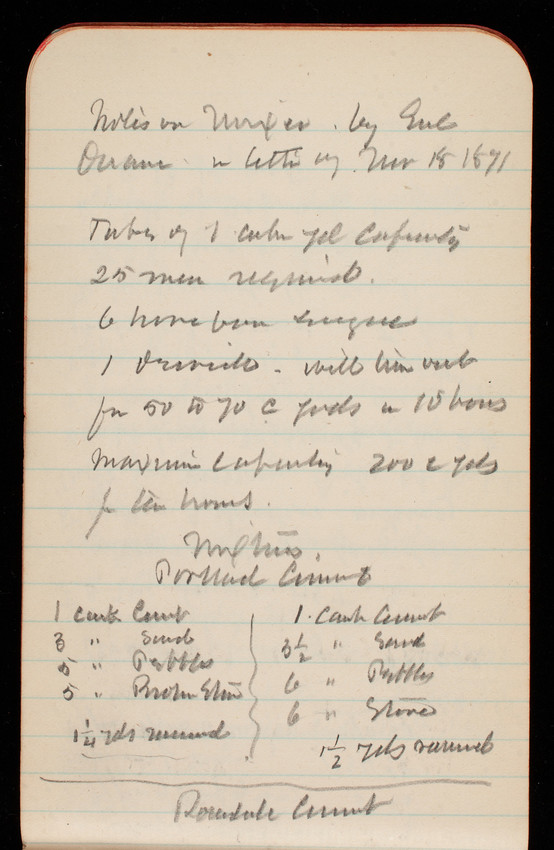 Notes on Mixer. by Gul
in letter of Nov 18 1891
Tubes of 1 cube yd capacity
25 men required.
6 horse power engine
1 Derrick - will turn out
for 50 to 70 c yards in 10 hours
Maximum capacity 200 c yds
for ten hours.
Mixtures.
Portland Cement
1 cask Cement
3 " Sand
5 " Pebbles
5 " Broken Stone
1 1/4 yds rammed
1 cask Cement
3 1/2 " Sand
6 " Pebbles
6 " Stone
1 1/2 yds rammed
Rosendale Cement